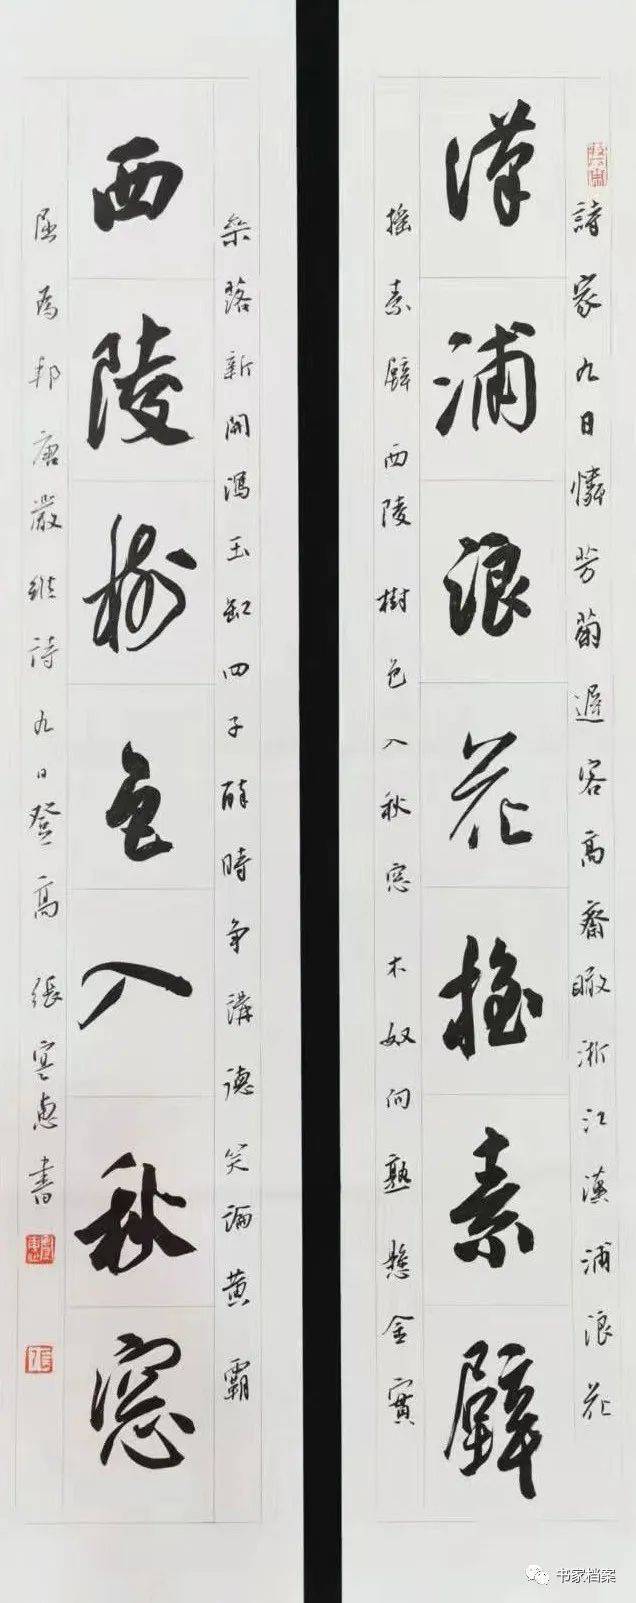 詩家九日憐芳菊遲客高齋瞰浙江漢浦浪花
漢浦浪花搖素壁
搖素壁西陵樹色入秋窓木奴向熟懸金實
桑落新開瀉玉缸四子醉時争講德笑論黄霸
西陵樹色入秋窓
屈為邦唐嚴維詩九日登高 張寒惠書
书家档案